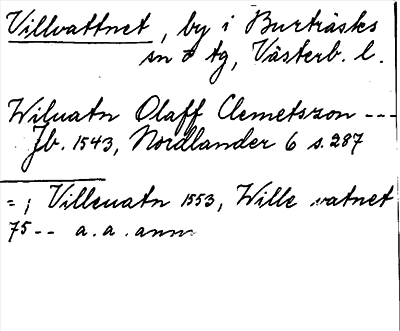 Villvattnet, by i Burträsks
sn o tg, Västerb. l.
Wiluatn Olaff Clemetszon ---
Jb. 1543, Nordlander 6 s. 287
= ; Villeuatn 1553, Wille vatnet
75-- a. a. anm